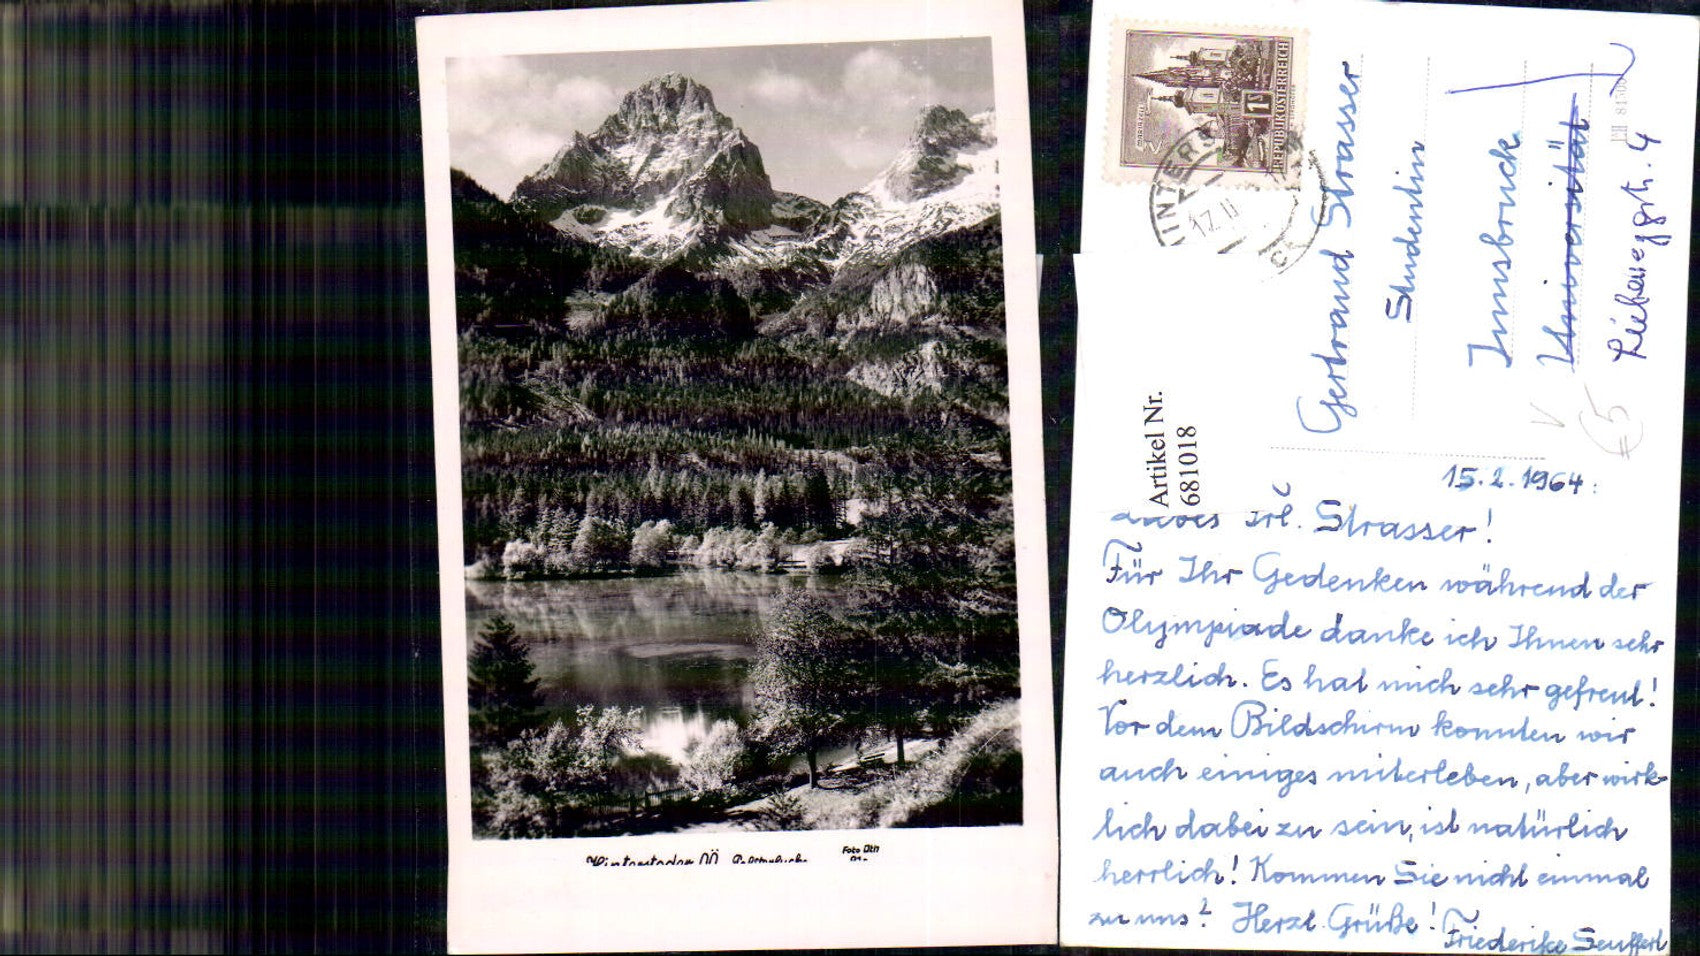 Hinterstoder OÖ
Foto Oth
MARIAZELL
1S
REPUBLIK ÖSTERREICH
HINTERS
17. II
CK
Gertraud Strasser
Studentin
Innsbruck
Universität
Liebeneggstr. 4
Artikel Nr.
681018
€5
15.2.1964.
Liebes Frl. Strasser!
Für Ihr Gedenken während der
Olympiade danke ich Ihnen sehr
herzlich. Es hat mich sehr gefreut!
Vor dem Bildschirm konnten wir
auch einiges miterleben, aber wirk-
lich dabei zu sein, ist natürlich
herrlich! Kommen Sie nicht einmal
zu uns? Herzl. Grüße!
Friederike Seufferl